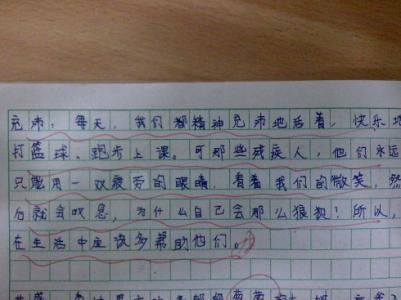 充沛：每天，我们都精神充沛地活着，快乐地
打篮球、跑步上课。可那些残疾人，他们永远
只能用一双疲劳的眼睛，看着我们的微笑，然
后就会叹息，为什么自己会那么狼狈！所以，
在生活中应该多帮助他们。